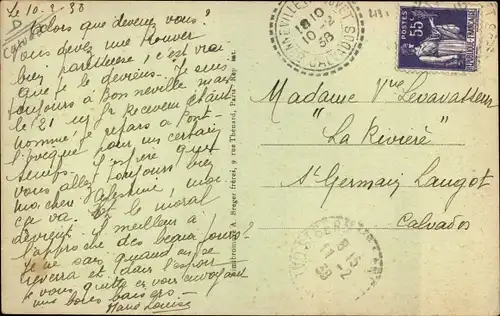 le 10-2-38
Alors que devenez vous?
Vous devez me trouver
bien paresseuse, c'est vrai
que je le deviens. Je suis
toujours à Bonneville mais
le 21
nommé, je repars à Pont-
l'evêque pour un certain
temps. J'espère que
vous allez toujours bien
moi,
ça va. Et le moral
devient il meilleur à
l'approche des beaux jours?
Je ne sais quand on se
reverra et dans l'espoir
vous quitte en vous envoyant
une bons baisers
Marie Louise
Combrommes. A. Breger frères, 9 rue Thénard, Paris - Rep. int.
18 10
10 -2
38
CALVADOS
POSTES
55c
Madame Vve Levavasseur
"La Rivière"
St Germain Langot
Calvados
8 15
11 -2
38